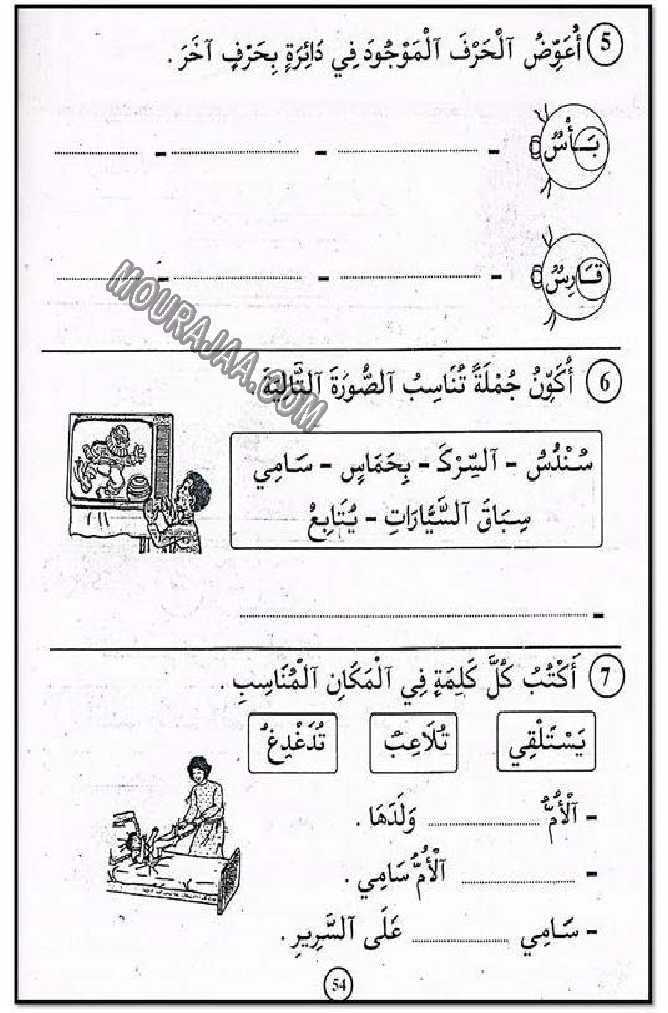 5 أُعَوِّضُ ٱلْحَرْفَ ٱلْمَوْجُودَ فِي دَائِرَةٍ بِحَرْفٍ آخَرَ .
بَـأْسٌ - ............ - ............ - ............
قَـارِسٌ - ............ - ............ - ............
MOURAJAA.COM
6 أُكَوِّنُ جُمْلَةً تُنَاسِبُ ٱلصُّورَةَ ٱلتَّالِيَةَ
سُنْدُسُ - ٱلسِّرْكَ - بِحَمَاسٍ - سَامِي
سِبَاقَ ٱلسَّيَّارَاتِ - يُتَابِعُ
- ............
7 أَكْتُبُ كُلَّ كَلِمَةٍ فِي ٱلْمَكَانِ ٱلْمُنَاسِبِ .
يَسْتَلْقِي تُلَاعِبُ تُدَغْدِغُ
- ٱلْأُمُّ ............ وَلَدَهَا .
- ............ ٱلْأُمُّ سَامِي .
- سَامِي ............ عَلَى ٱلسَّرِيرِ .
54